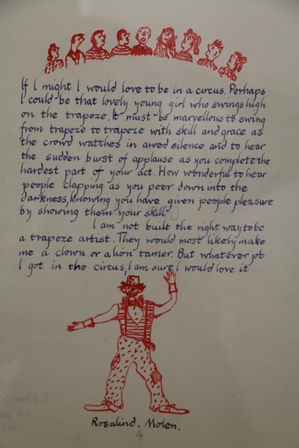 If I might I would love to be in a circus. Perhaps
I could be that lovely young girl who swings high
on the trapeze. It must be marvellous to swing
from trapeze to trapeze with skill and grace as
the crowd watches in awed silence and to hear
the sudden burst of applause as you complete the
hardest part of your act. How wonderful to hear
people clapping as you peer down into the
darkness, knowing you have given people pleasure
by showing them your skill.
I am not built the right way to be
a trapeze artist. They would most likely make
me a clown or a lion tamer. But whatever job
I got in the circus, I am sure I would love it
Rosalind. Molen.